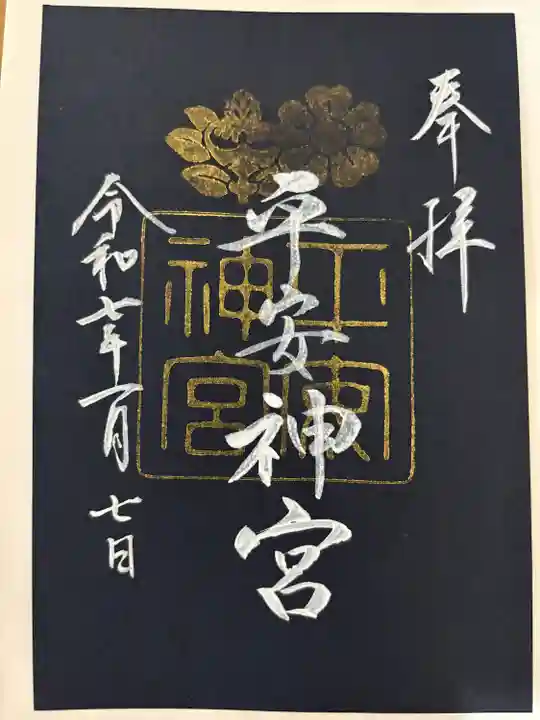 奉拝
平安神宮
令和七年一月七日
平安神宮